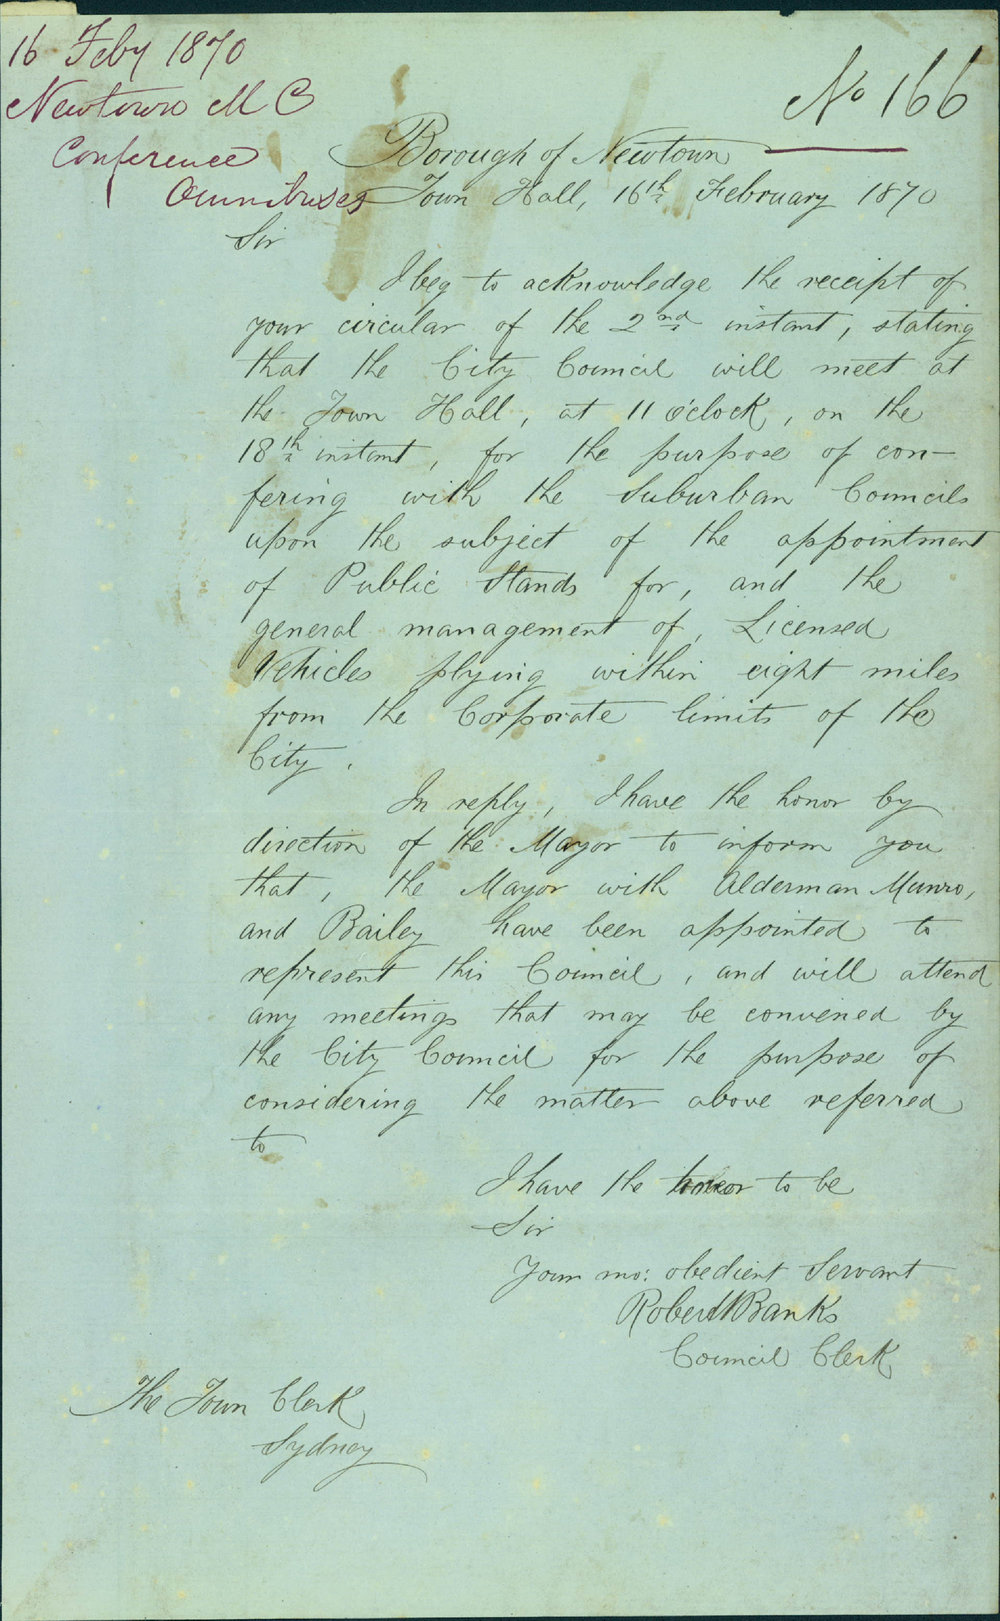 16 Feby 1870
Newtown M C
Conference
Omnibuses
No 166
Borough of Newtown
Town Hall, 16th February 1870
Sir
I beg to acknowledge the receipt of
your circular of the 2nd instant, stating
that the City Council will meet at
the Town Hall, at 11 o'clock, on the
18th instant, for the purpose of con-
fering with the Suburban Councils
upon the subject of the appointment
of Public Stands for, and the
general management of, Licensed
Vehicles plying within eight miles
from the Corporate limits of the
City.
In reply, I have the honor by
direction of the Mayor to inform you
that, the Mayor with Alderman Munro,
and Bailey have been appointed to
represent this Council, and will attend
any meetings that may be convened by
the City Council for the purpose of
considering the matter above referred
to
I have the honor to be
Sir
Your mo: obedient Servant
Robert Banks
Council Clerk
The Town Clerk
Sydney